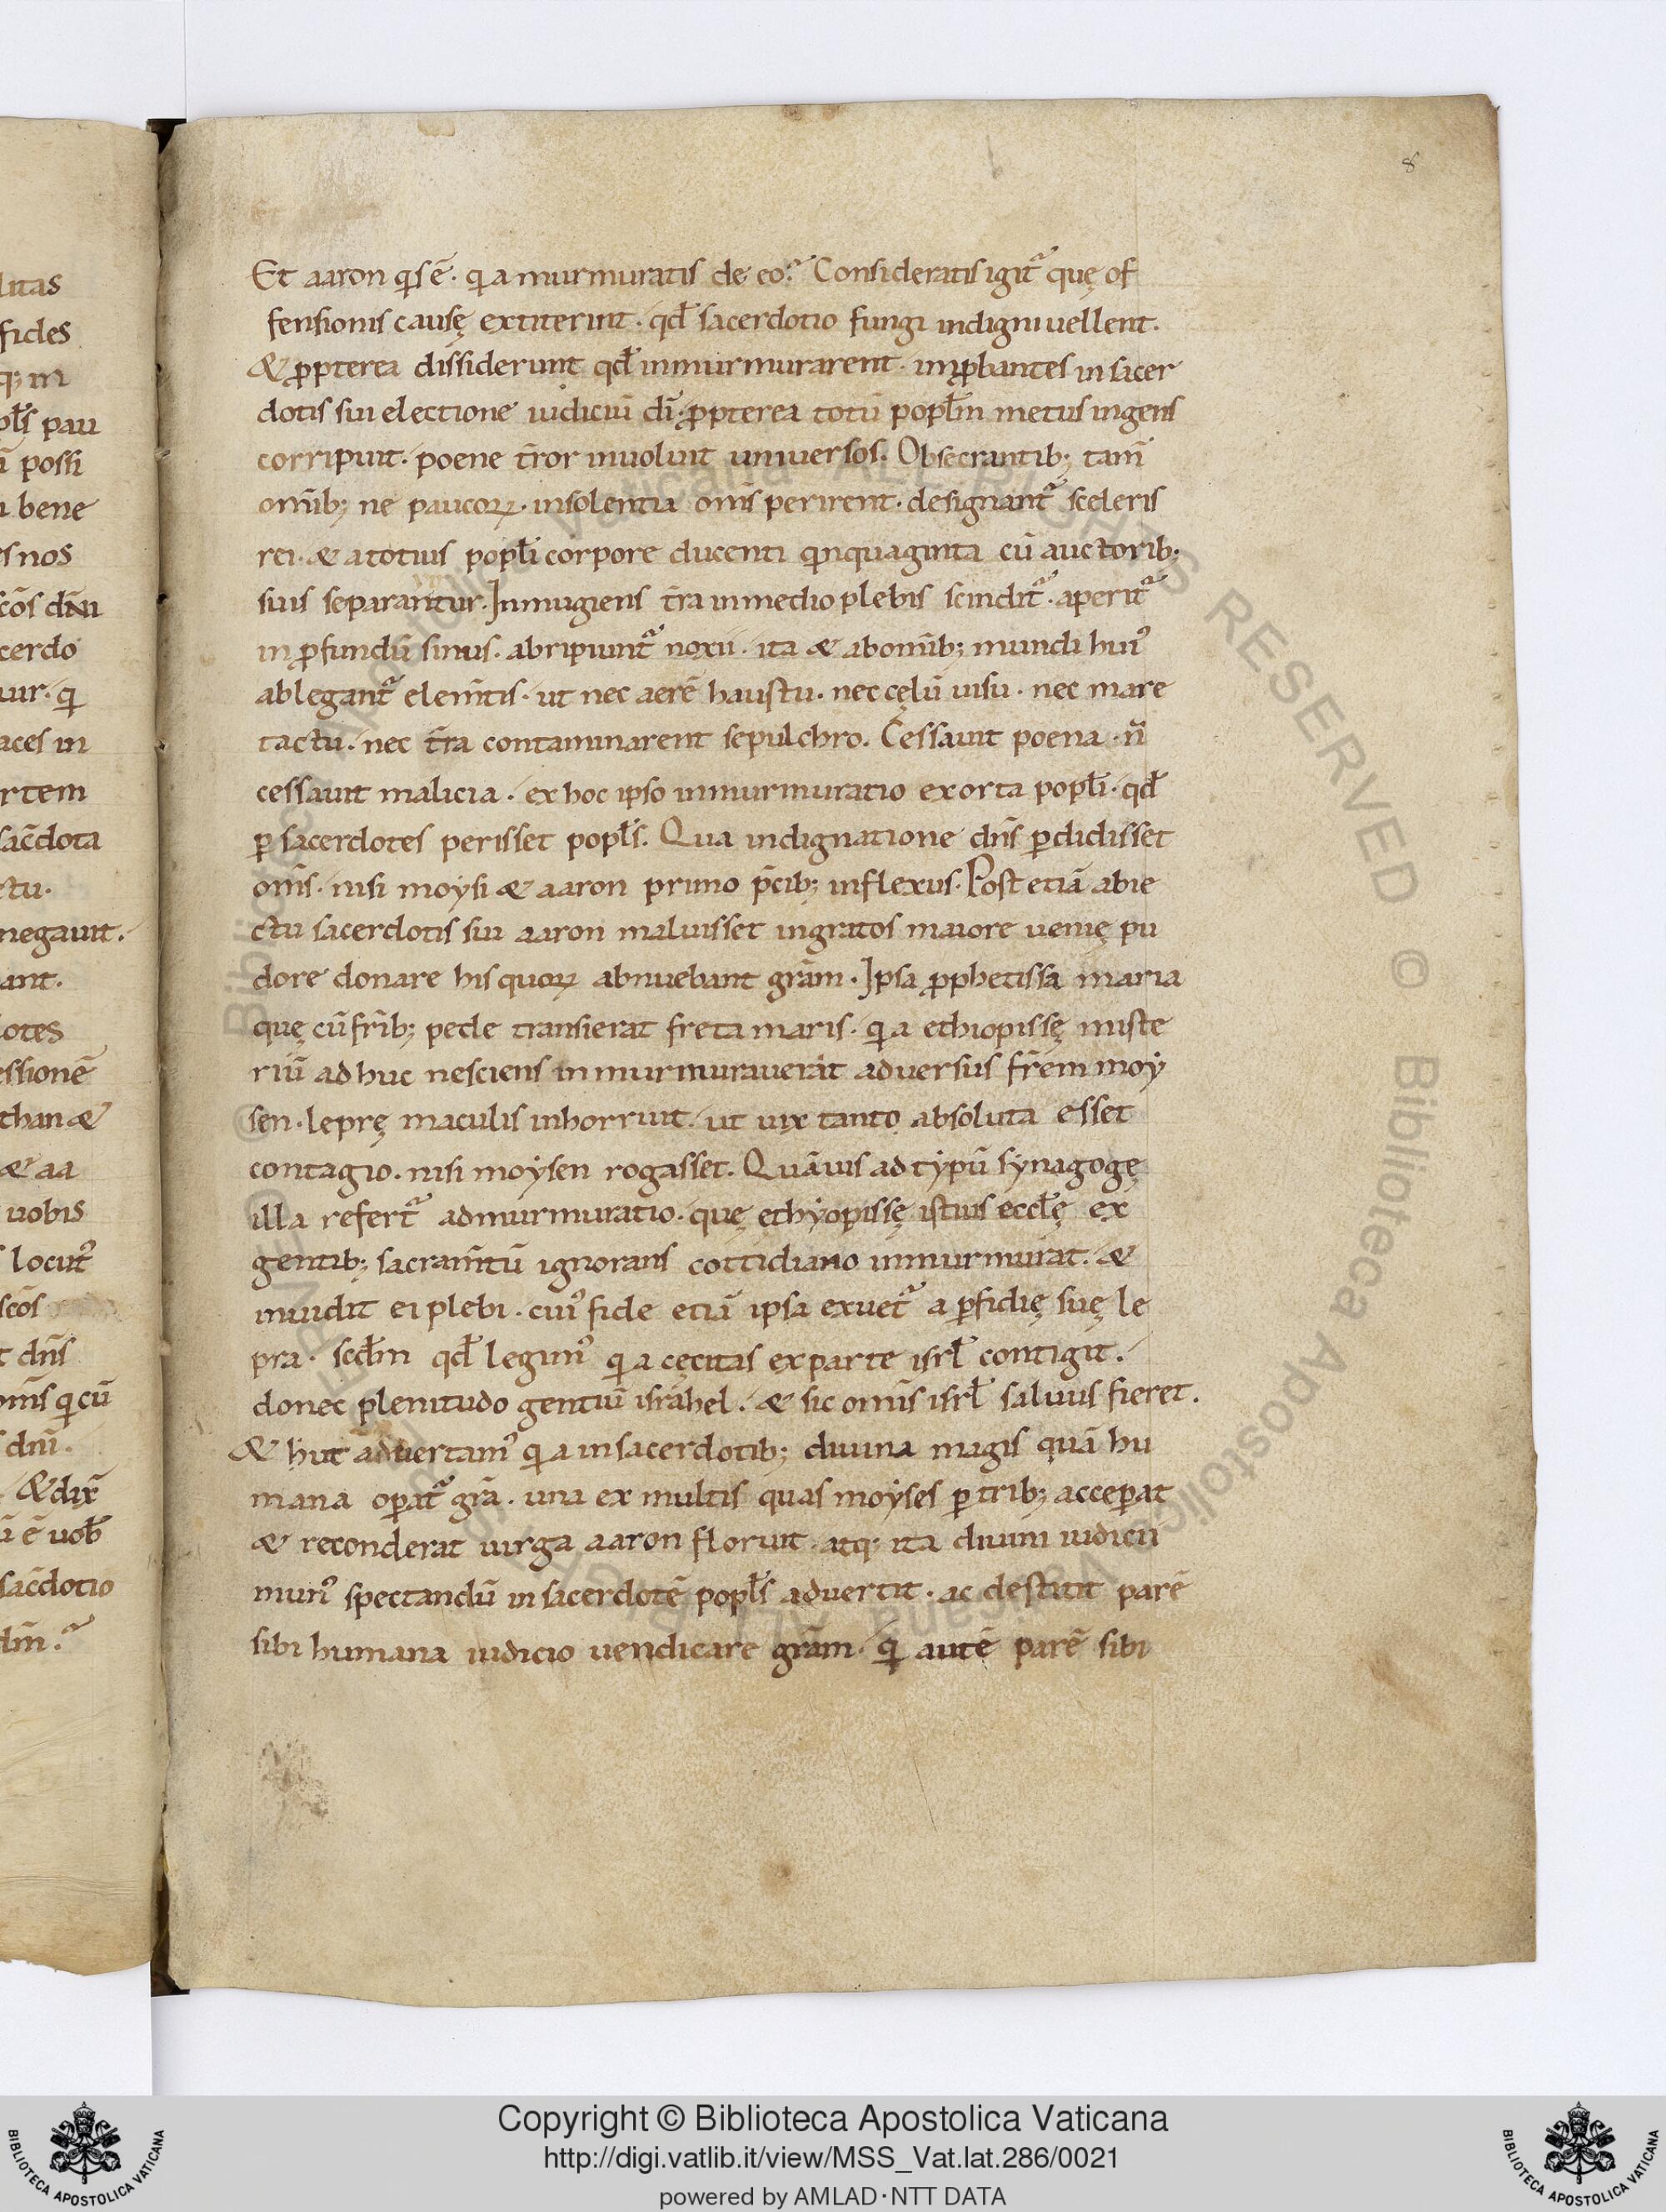 litas
fides
q; in
pl̄s pau
ī possi
n bene
s nos
scōs dn̄i
cerdo
uur. qi
aces in
rtem
sac̄dota
ctu.
negauit.
ant.
dotes
essionē
than &
& aa
uobis
s locutꝰ
scōs
t dn̄s
om̄s qi cū
s dn̄i.
& dix̄
ū ē uob̄
sac̄dotio
dn̄i.
8
Et aaron qis ē. qi a murmuratis de eo? Consideratis igit᷑ quę of
fensionis causę extiterint. qd̄ sacerdotio fungi indigni uellent.
& ꝓpterea dissiderunt qd̄ inmurmurarent. inꝓbantes in sacer
dotis sui electione iudiciū dī. ꝓpterea totū popl̄m metus ingens
corripuit. poene t̄ror inuoluit uniuersos. Obsecrantib; tam̄
om̄ib; ne paucoꝝ. insolentia om̄s perirent. designant᷑ sceleris
rei. & a totius popl̄i corpore ducenti qinquaginta cū auctorib;
suis separantur. Inmugiens t̄ra in medio plebis scindit᷑. aperit᷑
in ꝓfundū sinus. abripiunt᷑ noxii. ita & ab om̄ib; mundi huiꝰ
ablegant᷑ elem̄tis. ut nec aerē haustu. nec cęlū uisu. nec mare
tactu. nec t̄ra contaminarent sepulchro. Cessauit poena. n̄
cessauit malicia. ex hoc ipso inmurmuratio exorta popl̄i. qd̄
ꝑ sacerdotes perisset popl̄s. Qua indignatione dn̄s ꝑdidisset
om̄s. nisi moysi & aaron primo p̄cib; inflexus. Post etiā abie
ctu sacerdotis sui aaron maluisset ingratos maiore uenię pu
dore donare his quoꝝ abnuebant grām. Ipsa ꝓphetissa maria
quę cū fr̄ib; pede transierat freta maris. qi a ethiopissę miste
riū ad huc nesciens inmurmurauerat aduersus fr̄em moy
sen. leprę maculis inhorruit. ut uix tanto absoluta esset
contagio. nisi moysen rogasset. Quāuis ad typū synagogę
illa refert᷑ admurmuratio. quę ethyopissę istius eccl̄ę ex
gentib; sacram̄tū ignorans cottidiano inmurmurat. &
inuidit ei plebi. cuiꝰ fide etiā ipsa exuet᷑ a ꝑfidię suę le
pra. scd̄m qd̄ legimꝰ qi a cęcitas ex parte isrl̄ contigit.
donec plenitudo gentiū isrāhel. & sic om̄is isrl̄ saluus fieret.
& hut āduertamꝰ qi a in sacerdotib; diuina magis quā hu
mana oꝑat᷑ grā. una ex multis quas moyses ꝑ trib; acceꝑat
& reconderat uirga aaron floruit. atq; ita diuini iudicii
munꝰ spectandū in sacerdotē popl̄s aduertit. ac destitit parē
sibi humana iudicio uendicare grām. qi autē parē sibi
Copyright © Biblioteca Apostolica Vaticana
http://digi.vatlib.it/view/MSS_Vat.lat.286/0021
powered by AMLAD·NTT DATA
BIBLIOTECA APOSTOLICA VATICANA
BIBLIOTECA APOSTOLICA VATICANA